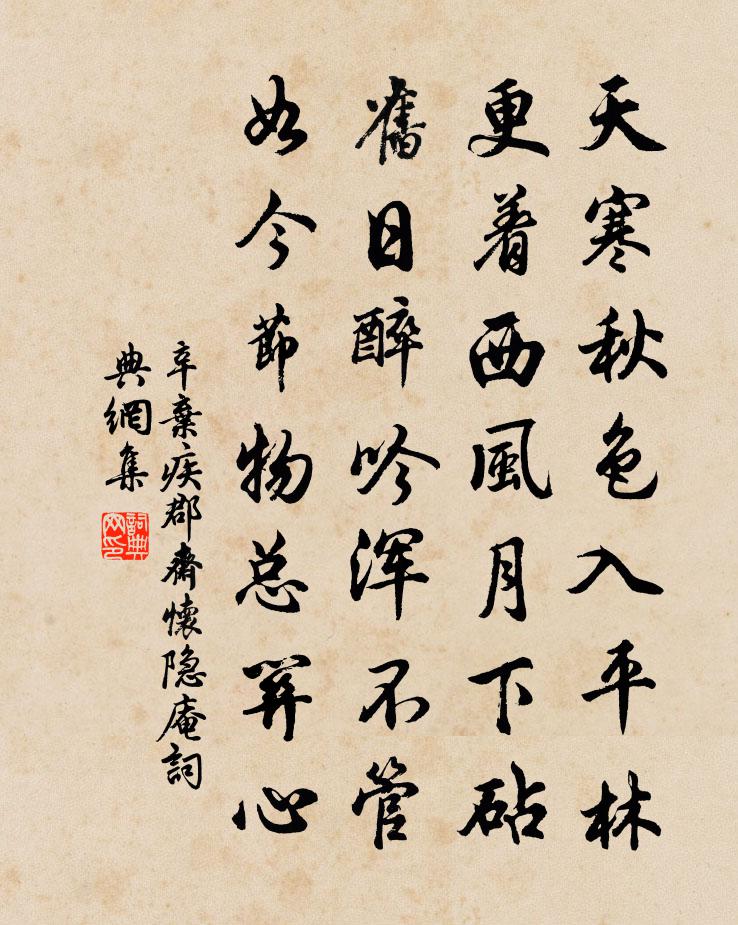 天寒秋色入平林
更着西風月下砧
舊日醉吟渾不管
如今節物总關心
辛棄疾郡齋懷隐庵詞
典網集
詞典网印